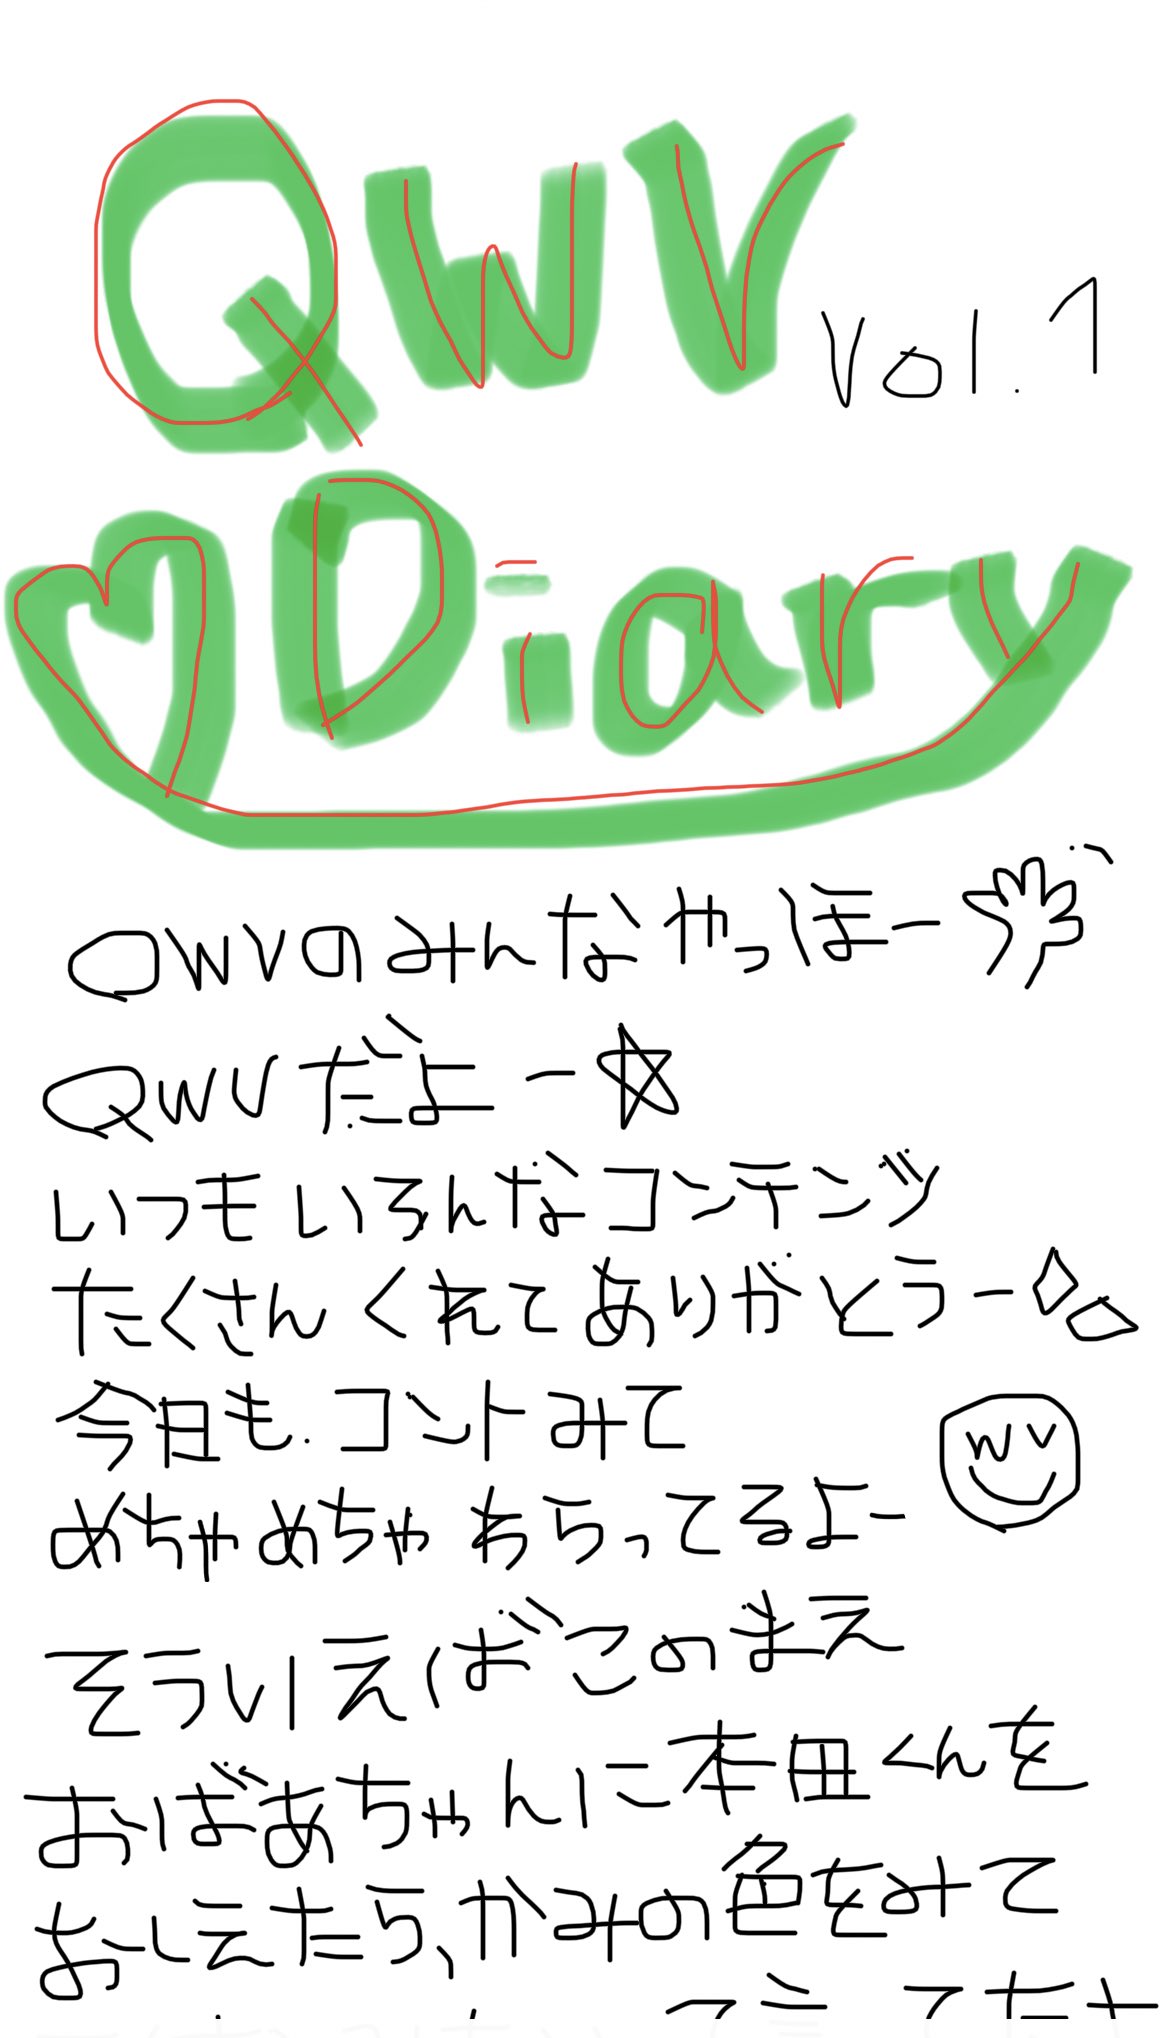 QWV
Vol.1
♡Diary
OWVのみんなやっほー
QWVだよー☆
いつもいろんなコンテンツ
たくさんくれてありがとうー
今日もコントみて
めちゃめちゃわらってるよー
WV
そういえばこのまえ
おばあちゃんに本田くんを
おしえたら、かみの色をみて